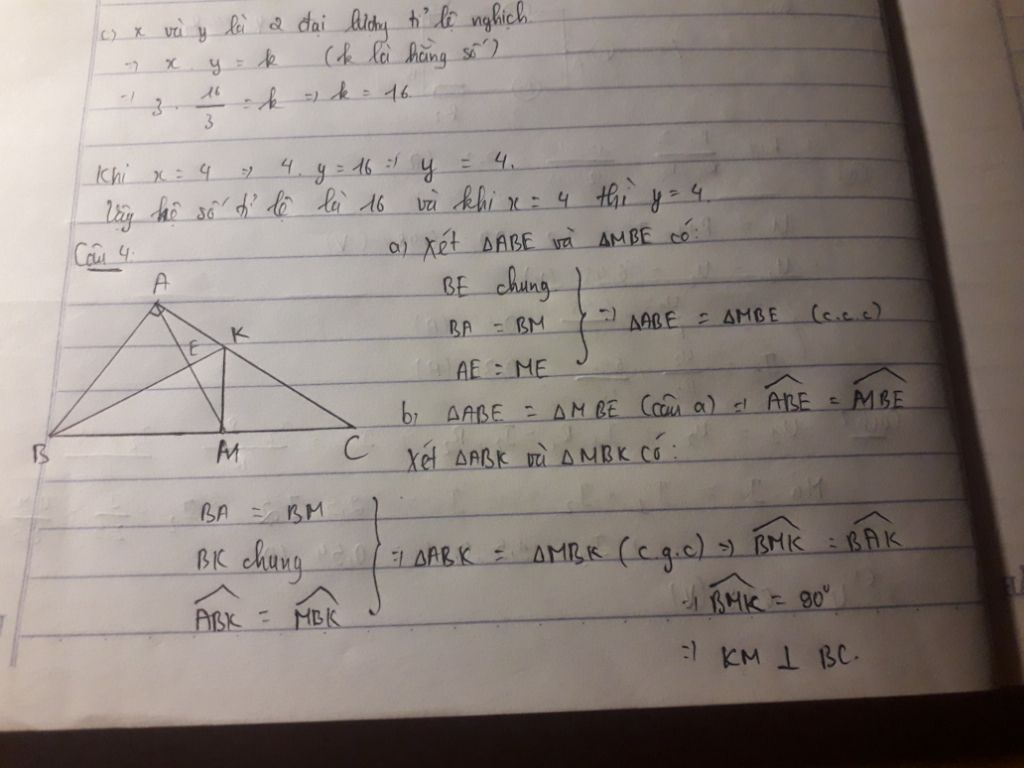 c) x và y là 2 đại lượng tỉ lệ nghịch
=> x . y = k (k là hằng số)
=> 3 . 16/3 = k => k = 16
Khi x = 4 => 4. y = 16 => y = 4.
Vậy hệ số tỉ lệ là 16 và khi x = 4 thì y = 4.
Câu 4.
A
E
K
B
M
C
a) Xét ΔABE và ΔMBE có:
BE chung
BA = BM
AE = ME
=> ΔABE = ΔMBE (c.c.c)
b, ΔABE = ΔMBE (câu a) => \widehat{ABE} = \widehat{MBE}
Xét ΔABK và ΔMBK có:
BA = BM
BK chung
\widehat{ABK} = \widehat{MBK}
=> ΔABK = ΔMBK (c.g.c) => \widehat{BMK} = \widehat{BAK}
=> \widehat{BMK} = 90°
=> KM ⊥ BC.